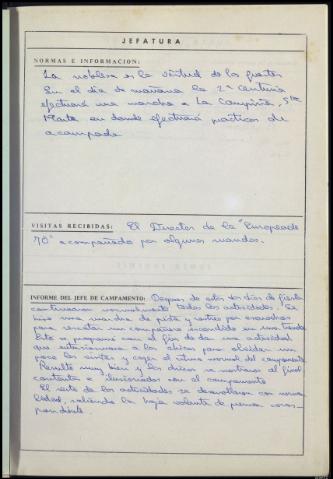 JEFATURA
NORMAS E INFORMACION:
La nobleza es la virtud de los fuertes
En el día de mañana la 2ª Centuria
efectuará una marcha a La Campiña, Sta
Marta en donde efectuará prácticas de
acampada
VISITAS RECIBIDAS: El Director de la "Europeade
70" acompañado por algunos mandos.
INFORME DEL JEFE DE CAMPAMENTO: Despues de estos dos días de fiesta
continuaron normalmente todas las actividades. Se
hizo una marcha de pista y rastreo por escuadras
para rescatar un compañero escondido en una tienda
Esto se programó con el fin de dar una actividad
que entusiasmara a los chicos para olvidar un
poco las visitas y coger el ritmo normal del campamento
Resultó muy bien y los chicos se mostraron al final
contentos e ilusionados con el campamento
El resto de las actividades se desarrollaron con norma
lidad, saliendo la hoja volante de prensa corres-
pondiente.